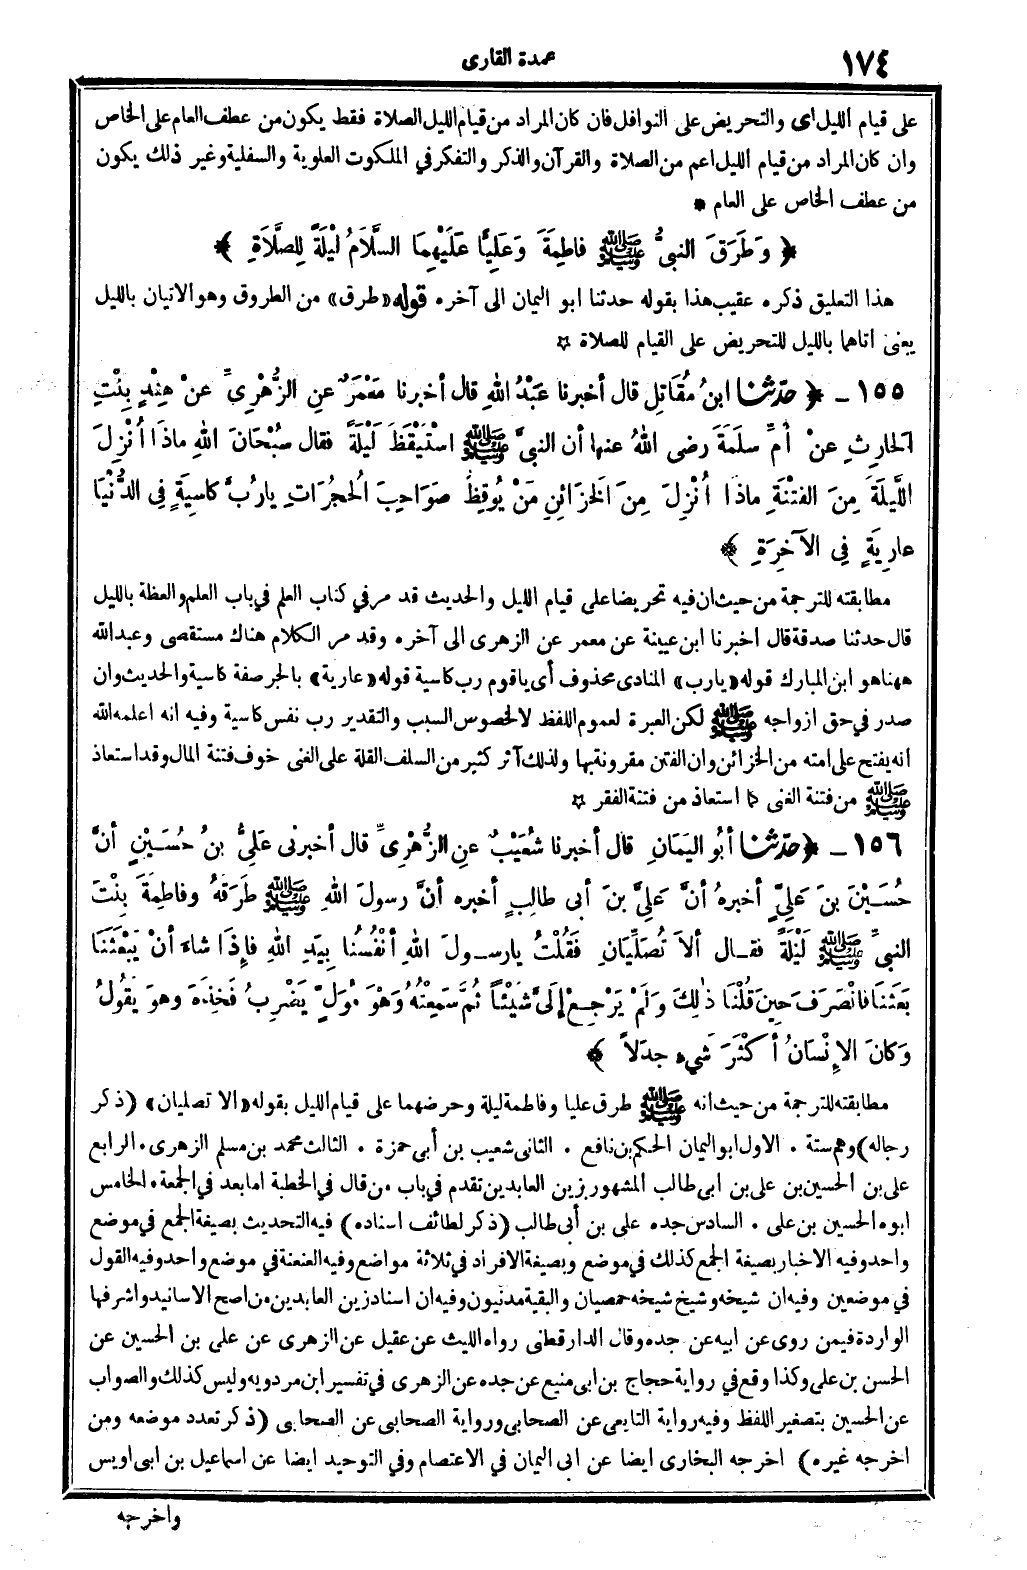 ١٧٤
عمدة القارى
على قيام الليل أى والتحريض على النوافل فان كان المراد من قيام الليل الصلاة فقط يكون من عطف العام على الخاص
وان كان المراد من قيام الليل اعم من الصلاة والقرآن والذكر والتفكر في الملكوت العلوية والسفلية وغير ذلك يكون
من عطف الخاص على العام *
﴿ وَطَرَقَ النبيُّ ﷺ فاطِمَةَ وَعَلِيًّا عَلَيْهِمَا السَّلاَمُ لَيْلَةً لِلصَّلاَةِ ﴾
هذا التعليق ذكره عقيب هذا بقوله حدثنا ابو اليمان الى آخره قوله «طرق» من الطروق وهو الاتيان بالليل
يعنى اتاهما بالليل للتحريض على القيام للصلاة ☆
١٥٥ ــ ﴿ حدّثنا ابنُ مُقَاتِلٍ قال أخبرنا عَبْدُ اللهِ قال أخبرنا مَعْمَرٌ عنِ الزُّهْرِىِّ عنْ هِنْدٍ بِنْتِ
الحارِثِ عنْ أُمِّ سلَمَةَ رضى اللهُ عنها أن النبيَّ ﷺ اسْتَيْقَظَ لَيْلَةً فقال سُبْحَانَ اللهِ ماذَا أُنْزِلَ
اللَّيْلَةَ مِنَ الفتْنَةِ ماذَا أُنْزِلَ مِنَ الخَزائِنِ مَنْ يُوقِظُ صَوَاحِبَ الحُجُرَاتِ يارُبَّ كاسِيَةٍ فِي الدُّنْيَا
عارِيَةٍ فِي الآخِرَةِ ﴾
مطابقته للترجمة من حيث ان فيه تحريضا على قيام الليل والحديث قد مر في كتاب العلم في باب العلم والعظة بالليل
قال حدثنا صدقة قال اخبرنا ابن عيينة عن معمر عن الزهرى الى آخره وقد مر الكلام هناك مستقصى وعبد الله
ههنا هو ابن المبارك قوله «يارب» المنادى محذوف أى ياقوم رب كاسية قوله «عارية» بالجر صفة كاسية والحديث وان
صدر في حق ازواجه ﷺ لكن العبرة لعموم اللفظ لا لخصوص السبب والتقدير رب نفس كاسية وفيه انه اعلمه الله
انه يفتح على امته من الخزائن وان الفتن مقرونة بها ولذلك آثر كثير من السلف القلة على الغنى خوف فتنة المال وقد استعاذ
ﷺ من فتنة الغنى كما استعاذ من فتنة الفقر ☆
١٥٦ ــ ﴿ حدّثنا أبُو اليَمَانِ قال أخبرنا شُعَيْبٌ عنِ الزُّهْرِىِّ قال أخبرنى عَلِىُّ بنُ حُسَيْنٍ أنَّ
حُسَيْنَ بنَ عَلِيٍّ أخبرهُ أنَّ عَلِيَّ بنَ أبى طالِبٍ أخبره أنَّ رسولَ اللهِ ﷺ طَرَقَهُ وفاطِمَةَ بِنْتَ
النبيِّ ﷺ لَيْلَةً فقـال ألاَ تُصَلِّيَانِ فَقُلْتُ يارسـولَ اللهِ أنْفُسُنَا بِيَدِ اللهِ فإِذَا شاءَ أنْ يَبْعَثَنَا
بَعَثَنَا فانْصَرَفَ حِينَ قُلْنَا ذٰلِكَ وَلَمْ يَرْجِعْ إلَىَّ شَيْئًا ثُمَّ سَمِعْتُهُ وَهْوَ مُوَلٍّ يَضْرِبُ فَخِذَهُ وهوَ يَقُولُ
وَكانَ الإِنْسَانُ أكْثَرَ شَيْءٍ جدَلاً ﴾
مطابقته للترجمة من حيث انه ﷺ طرق عليا وفاطمة ليلة وحرضهما على قيام الليل بقوله «الا تصليان» (ذكر
رجاله) وهم ستة . الاول ابو اليمان الحكم بن نافع . الثانى شعيب بن أبى حمزة . الثالث محمد بن مسلم الزهرى. الرابع
على بن الحسين بن على بن ابى طالب المشهور بزين العابدين تقدم في باب من قال في الخطبة اما بعد في الجمعة. الخامس
ابوه الحسين بن على . السادس جده على بن أبى طالب (ذكر لطائف اسناده) فيه التحديث بصيغة الجمع في موضع
واحد وفيه الاخبار بصيغة الجمع كذلك في موضع وبصيغة الافراد في ثلاثة مواضع وفيه العنعنة في موضع واحد وفيه القول
في موضعين وفيه ان شيخه وشيخ شيخه حمصيان والبقية مدنيون وفيه ان اسناد زين العابدين من اصح الاسانيد واشرفها
الواردة فيمن روى عن ابيه عن جده وقال الدارقطنى رواه الليث عن عقيل عن الزهرى عن على بن الحسين عن
الحسن بن على وكذا وقع في رواية حجاج بن ابى منيع عن جده عن الزهرى في تفسير ابن مردويه وليس كذلك والصواب
عن الحسين بتصغير اللفظ وفيه رواية التابعى عن الصحابى ورواية الصحابى عن الصحابى (ذكر تعدد موضعه ومن
اخرجه غيره) اخرجه البخارى ايضا عن ابى اليمان في الاعتصام وفي التوحيد ايضا عن اسماعيل بن ابى اويس
واخرجه